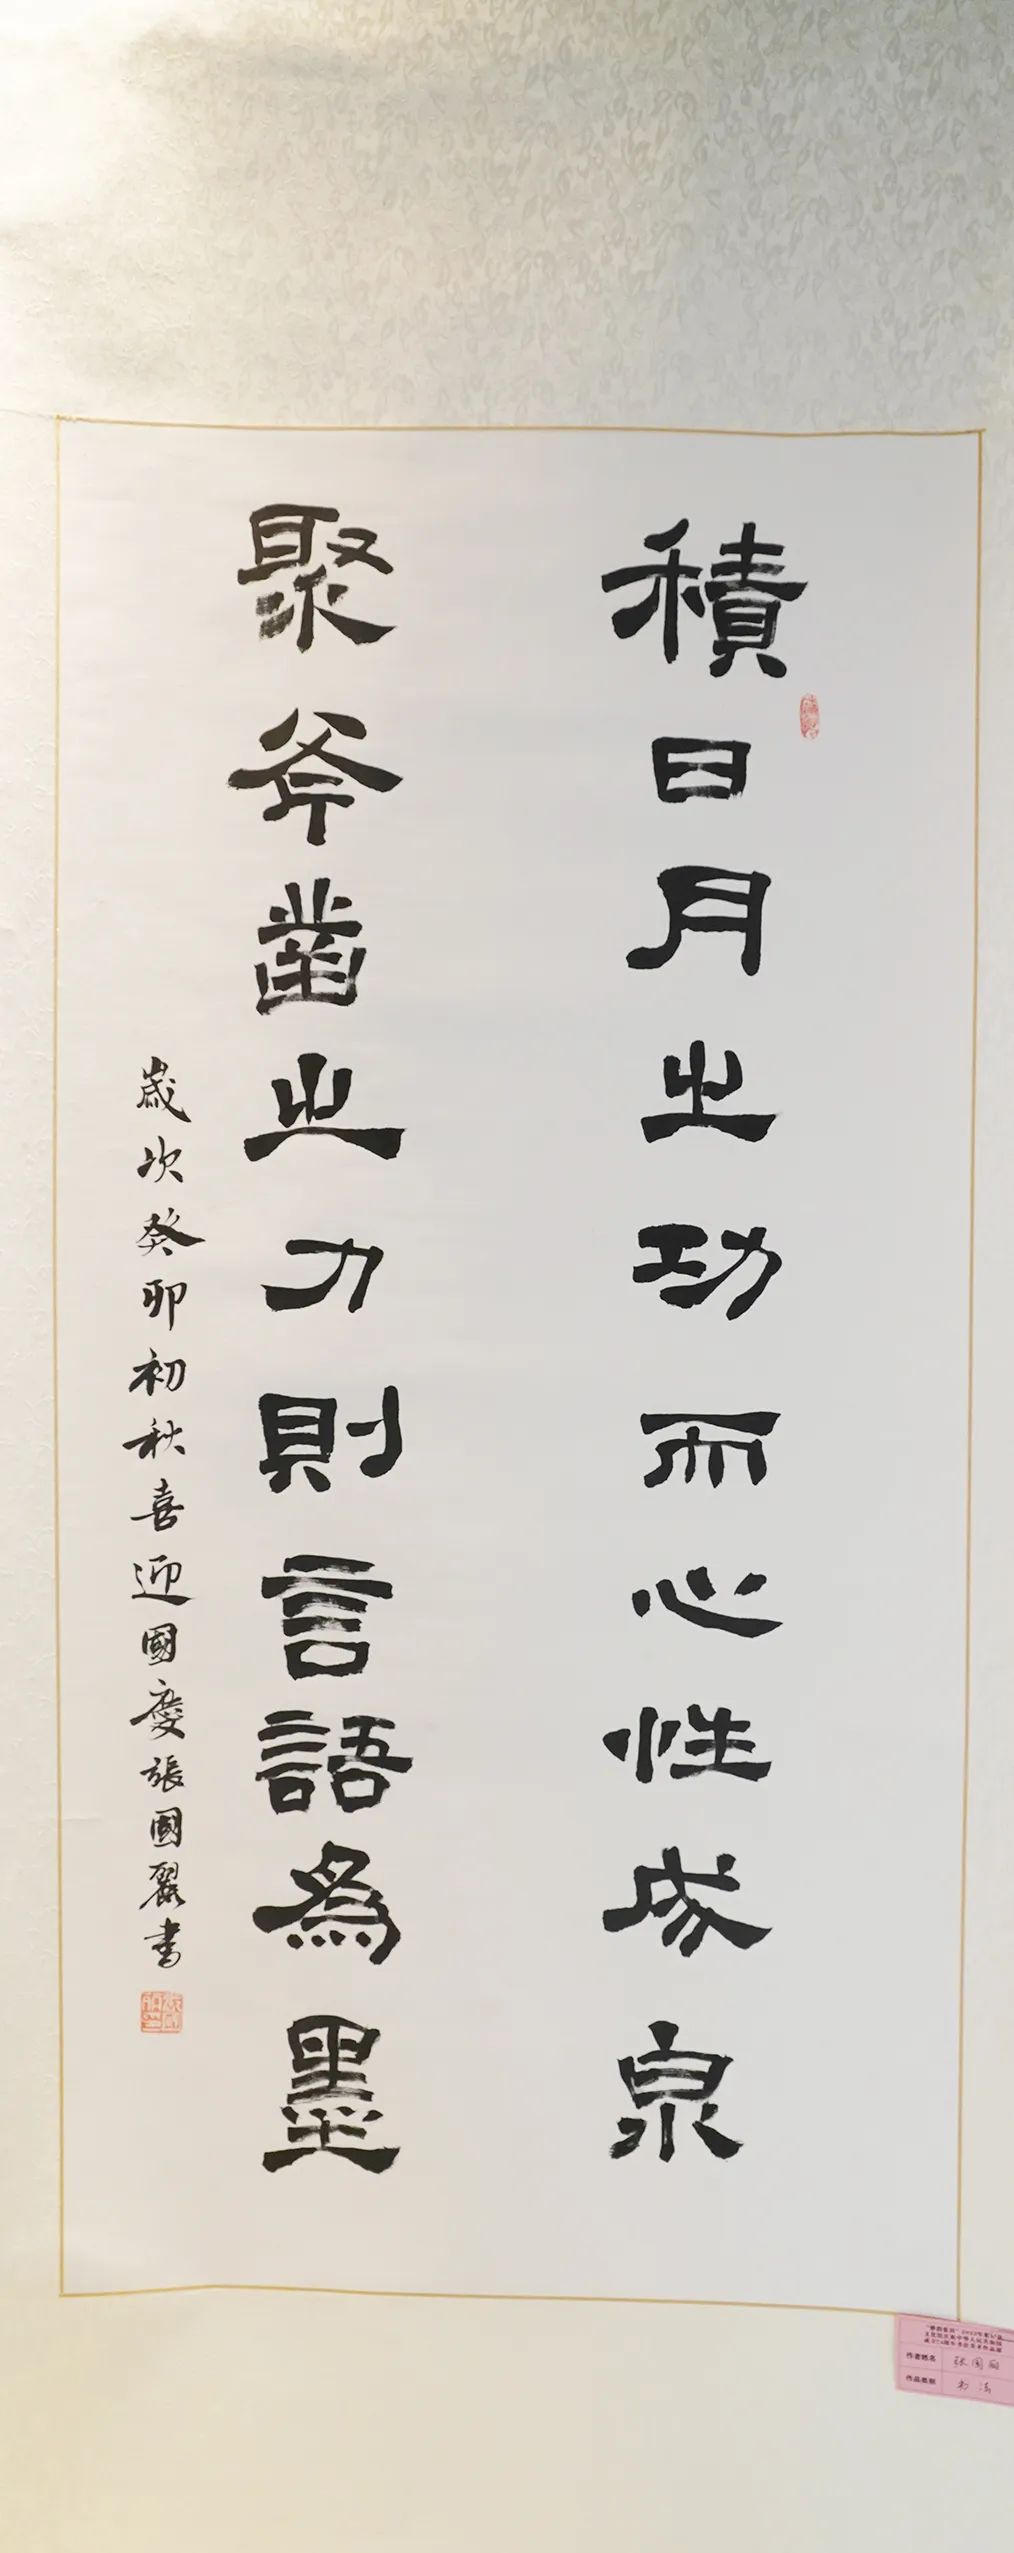 積日月之功而心性成泉
聚斧凿之力則言語為墨
歲次癸卯初秋喜迎國慶張國麗書
作者姓名 张国丽
作品类别 书法